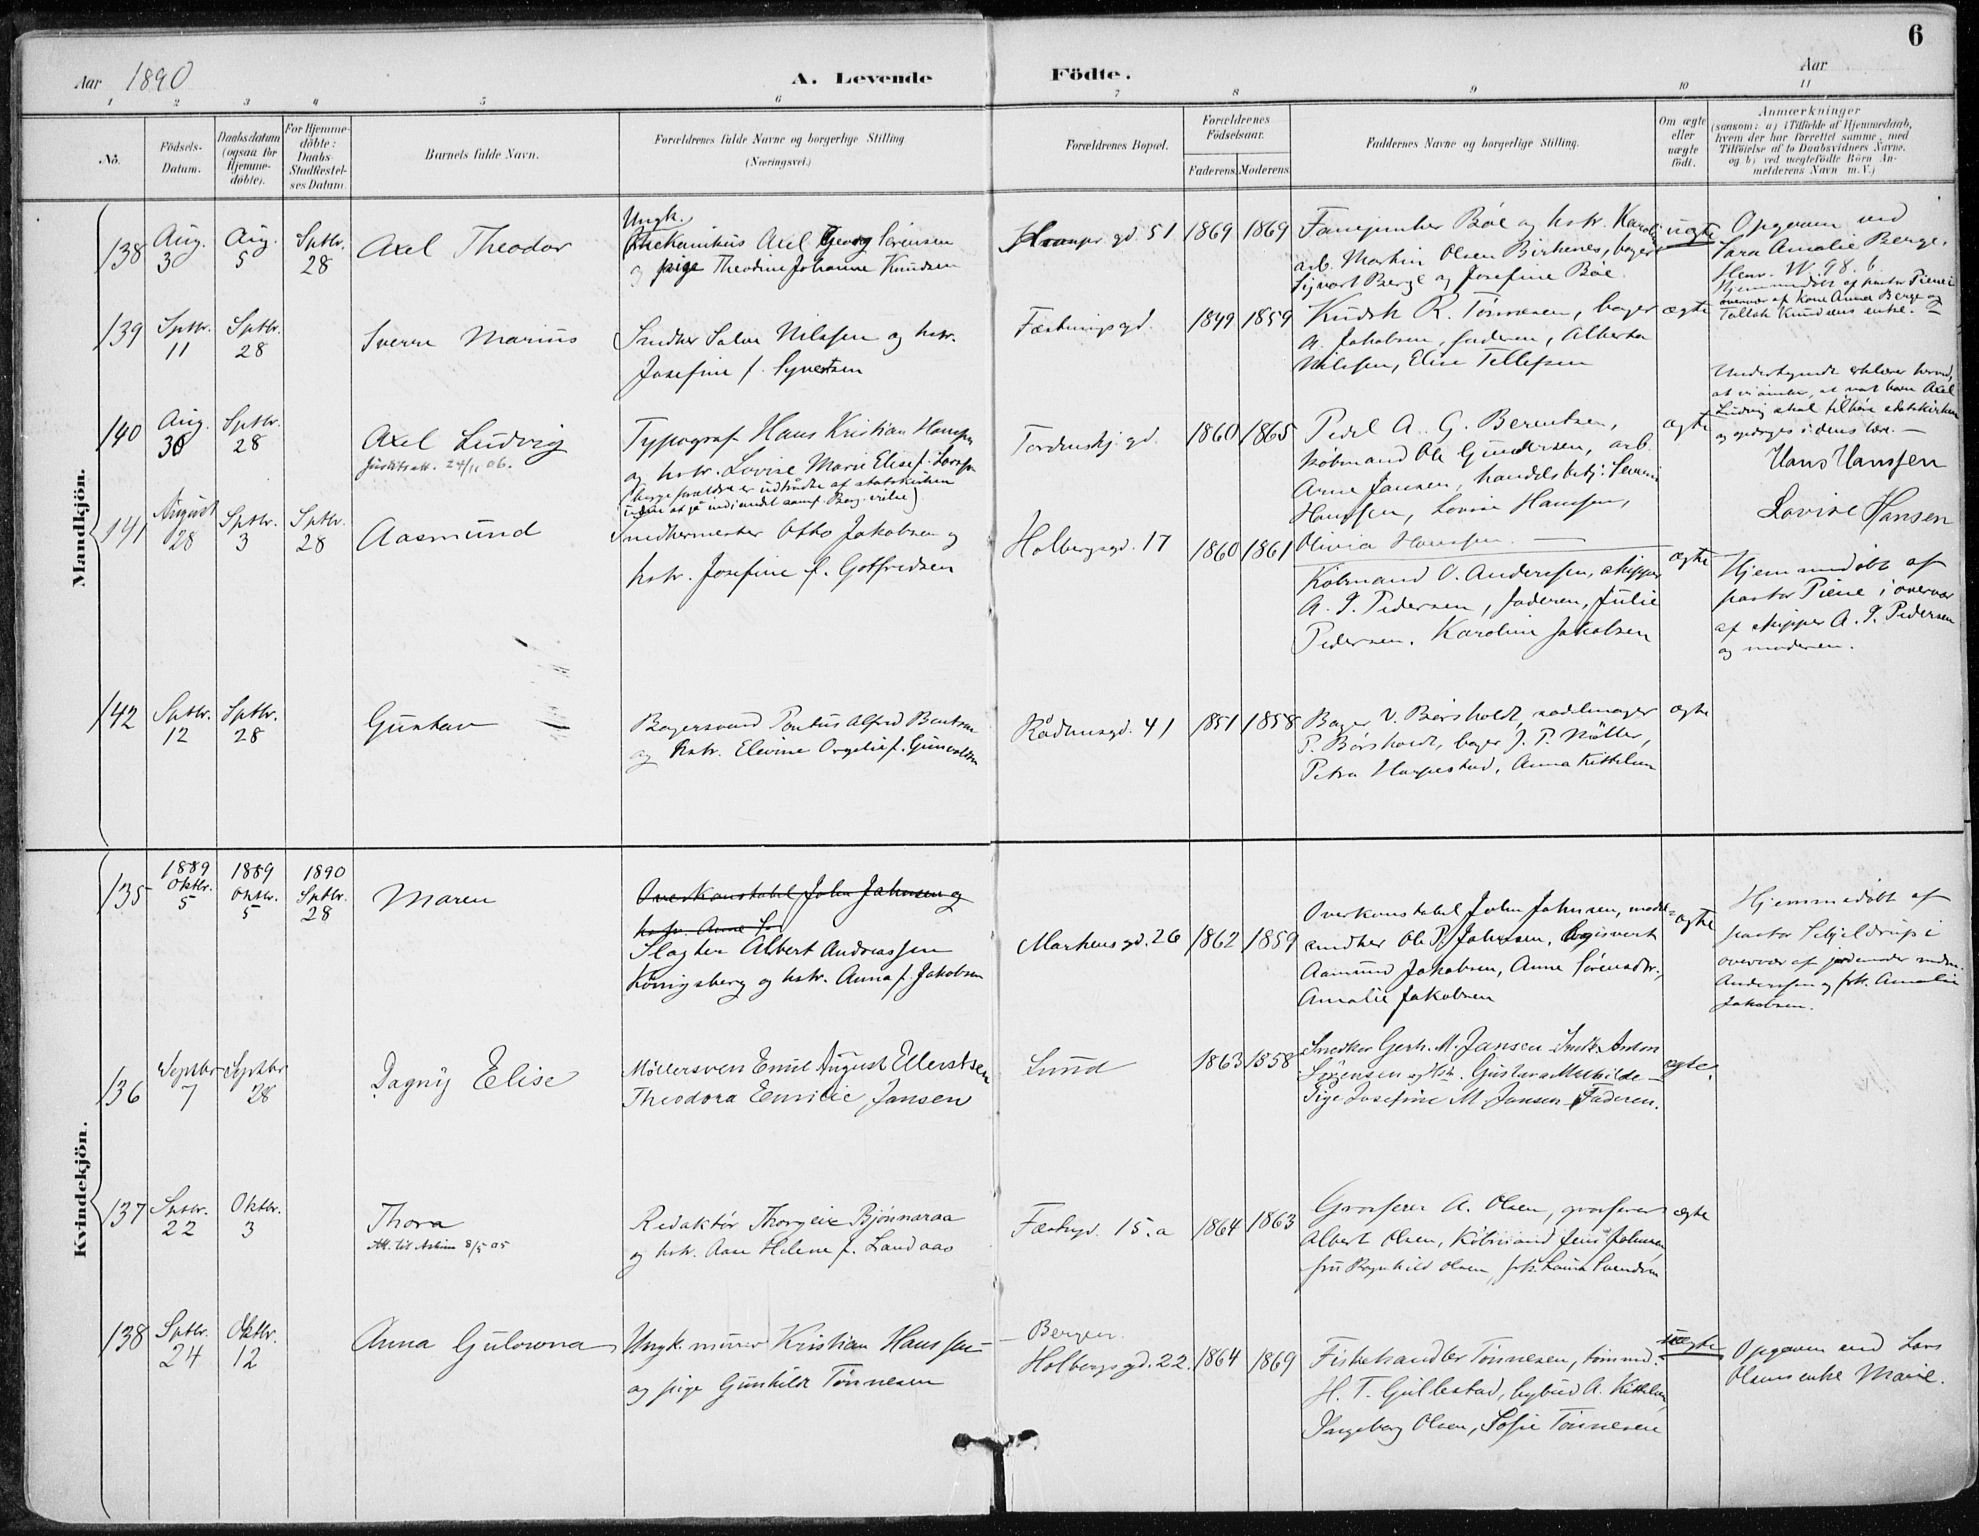 6
Aar 1890 A. Levende Födte. Aar
1 2 3 4 5 6 7 8 9 10 11
No.
Födsels-
Datum.
Daabsdatum
(ogsaa for
Hjemme-
döbte).
For Hjemme-
döbte:
Daabs-
Stadfæstel-
ses Datum.
Barnets fulde Navn.
Forældrenes fulde Navne og borgerlige Stilling
(Næringsvei.)
Forældrenes Bopæl.
Forældrenes
Födselsaar.
Faderens. Moderens.
Faddernes Navne og borgerlige Stilling.
Om ægte
eller
uægte
födt.
Anmærkninger
(saasom: a) i Tilfælde af Hjemmedaab,
hvem der har forrettet samme, med
Tilföielse af to Daabsvidners Navne.
og b) ved uægtefödte Börn An-
melderens Navn m. V.)
Mandkjön.
138 Aug. 3 Aug. 5 Sptbr. 28
Axel Theodor
Ungk.
Mekanikus Axel Georg Sörensen
og pige Theodine Johanne Knudsen
gd. 51 1869 1869
Fanejunker Böe og hstr. Karoline
arb. Martin Olsen Birkenes, bager
Sigvart Berge og Josefine Böe
uægte
Opgaven ved
Sara Amalie Berge.
W. 98. b.
Hjemmedöbt af pastor Piene i
overvær af Kone Anna Berge og
Tallak Knudsens enke. —
139 Sptbr. 11 Sptbr. 28
Sverre Marius
Snedker Salve Nilssen og hstr.
Josefine f. Syvertsen
Fæstningsgd. 1849 1859
Kudsk R. Tönnesen, bager
A. Jakobsen, faderen, Alberta
Nilssen, Elise Tellefsen
ægte
140 Aug. 30 Sptbr. 28
Axel Ludvig
24/11 06.
Typograf Hans Kristian Hanssen
og hstr. Lovise Marie Elise f. Larssen
(begge forældre er udtrådte af statskirken
uden at gå ind i andet samf. Borg. viet)
Tordenskj. gd. 1860 1865
Pedel A. G. Berentsen,
köbmand Ole Gundersen, arb.
Arne Jansen, handelsbetj. Severin
Hanssen, Lovise Hanssen,
Olivia Hanssen. —
ægte
Undertegnede erklærer herved,
at vi önsker, at vort barn Axel
Ludvig skal tilhöre statskirken
og opdrages i dens lære. —
Hans Hanssen
Lovise Hansen
141 August 28 Sptbr. 3 Sptbr. 28
Aasmund
Snedkermester Otto Jakobsen og
hstr. Josefine f. Gotfredsen
Holbergsgd. 17 1860 1861
Köbmand O. Anderssen, skipper
A. J. Pedersen, faderen, Julie
Pedersen, Karoline Jakobsen
ægte
Hjemmedöbt af
pastor Piene i overvær
af skipper A. J. Pedersen
og moderen.
142 Sptbr. 12 Sptbr. 28
Gustav
Bagersvend Pontus Alfred Bentsen
og hstr. Elevine Orgelie f. Gunvaldsen
Rådhusgd. 41 1851 1858
Bager V. Börsholdt, sadelmager
P. Börsholdt, bager J. P. Nöller,
Petra Harpestad, Anna Kittelsen
ægte
Kvindekjön.
135 1889 Oktbr. 5 1889 Oktbr. 5 1890 Sptbr. 28
Maren
Overkonstabel John Johnsen og
hstr. Anne Sö
Slagter Albert Andreassen
Königsberg og hstr. Anna f. Jakobsen
Markensgd. 26 1862 1859
Overkonstabel John Johnsen, model-
snedker Ole P. Johnsen, logisvert
Aamund Jakobsen, Anne Sörensdtr.,
Amalie Jakobsen
ægte
Hjemmedöbt af
pastor Schjeldrup i
overvær af jordemoder
Anderssen og frk. Amalie
Jakobsen.
136 Septbr 7 Septbr 28
Dagny Elise
Möllersven Emil August Ellertsen
Theodora Emilie Jansen
Lund 1863 1858
Snedker Gerh. M. Jansen Snedk. Anton
Sörensen og hstr. Gustava Mathilde —
Pige Josefine M. Jansen — Faderen.
ægte.
137 Sptbr. 22 Oktbr. 3
Thora
Att. til Askim 8/5 05
Redaktör Thorgeir Bjönnaraa
og hstr. Aase Helene f. Landaas
Fæstngd. 15.a 1864 1863
Grosserer A. Olsen, grosserer
Albert Olsen, Köbmand Jens Johnsen,
fru Ragnhild Olsen, frk. Laura Svendsen
ægte
138 Sptbr. 24 Oktbr. 12
Anna Gulowna
Ungk. murer Kristian Hanssen —
og pige Gunhilde Tönnesen
— Bergen.
Holbergsgd. 22. 1864 1869
Fiskehandler Tönnesen, tömmd.
H. T. Gullestad, bybud A. Kittelsen,
Ingeborg Olsen, Sofie Tönnesen
uægte
Opgaven ved Lars
Olsens enke Marie.